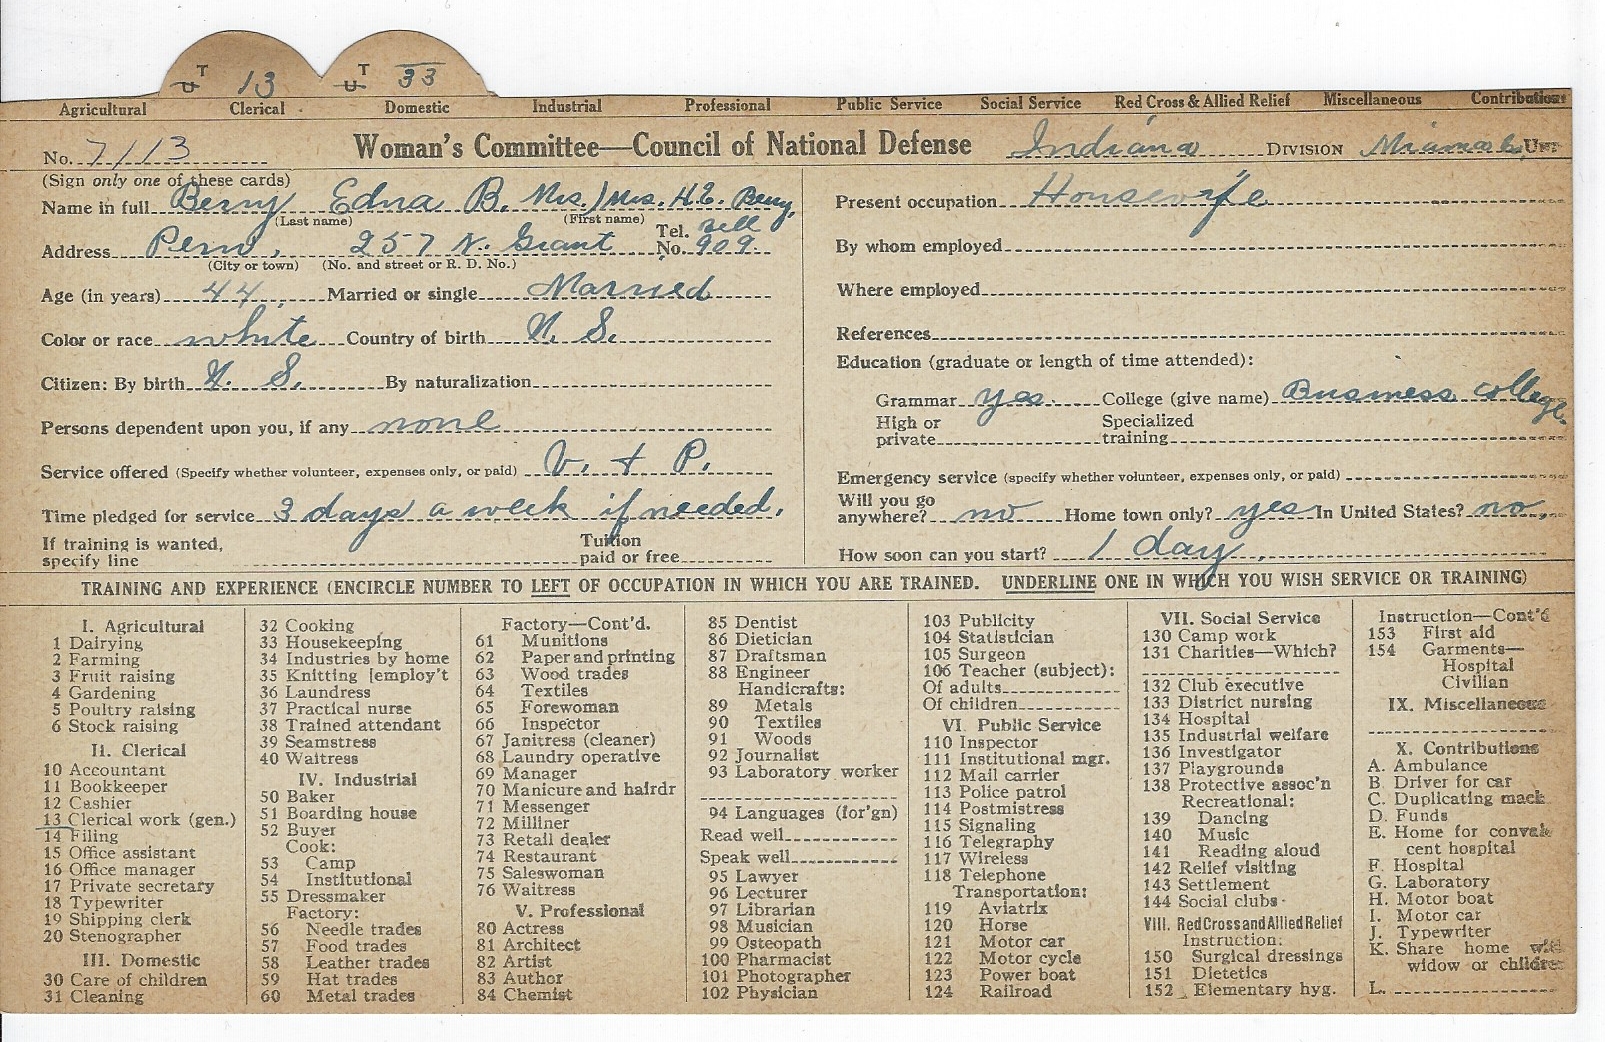 T 13 T 33
Agricultural Clerical Domestic Industrial Professional Public Service Social Service Red Cross & Allied Relief Miscellaneous Contributions
No. 7113 Woman's Committee—Council of National Defense Indiana DIVISION UNIT
(Sign only one of these cards)
Name in full Berry Edna B. Mrs./Mrs. H.E. Berry.
(Last name) (First name)
Address Peru, 257 N. Grant Tel. No. Bell 909.
(City or town) (No. and street or R. D. No.)
Age (in years) 44 Married or single Married
Color or race white Country of birth U. S.
Citizen: By birth U. S. By naturalization
Persons dependent upon you, if any none
Service offered (Specify whether volunteer, expenses only, or paid) V. + P.
Time pledged for service 3 days a week if needed.
If training is wanted, specify line Tuition paid or free
Present occupation Housewife
By whom employed
Where employed
References
Education (graduate or length of time attended):
Grammar yes. College (give name) Business College.
High or private Specialized training
Emergency service (specify whether volunteer, expenses only, or paid)
Will you go anywhere? no Home town only? yes In United States? no.
How soon can you start? 1 day.
TRAINING AND EXPERIENCE (ENCIRCLE NUMBER TO LEFT OF OCCUPATION IN WHICH YOU ARE TRAINED. UNDERLINE ONE IN WHICH YOU WISH SERVICE OR TRAINING)
I. Agricultural
1 Dairying
2 Farming
3 Fruit raising
4 Gardening
5 Poultry raising
6 Stock raising
II. Clerical
10 Accountant
11 Bookkeeper
12 Cashier
13 Clerical work (gen.)
14 Filing
15 Office assistant
16 Office manager
17 Private secretary
18 Typewriter
19 Shipping clerk
20 Stenographer
III. Domestic
30 Care of children
31 Cleaning
32 Cooking
33 Housekeeping
34 Industries by home
35 Knitting [employ't
36 Laundress
37 Practical nurse
38 Trained attendant
39 Seamstress
40 Waitress
IV. Industrial
50 Baker
51 Boarding house
52 Buyer
Cook:
53 Camp
54 Institutional
55 Dressmaker
Factory:
56 Needle trades
57 Food trades
58 Leather trades
59 Hat trades
60 Metal trades
Factory—Cont'd.
61 Munitions
62 Paper and printing
63 Wood trades
64 Textiles
65 Forewoman
66 Inspector
67 Janitress (cleaner)
68 Laundry operative
69 Manager
70 Manicure and hairdr
71 Messenger
72 Milliner
73 Retail dealer
74 Restaurant
75 Saleswoman
76 Waitress
V. Professional
80 Actress
81 Architect
82 Artist
83 Author
84 Chemist
85 Dentist
86 Dietician
87 Draftsman
88 Engineer
Handicrafts:
89 Metals
90 Textiles
91 Woods
92 Journalist
93 Laboratory worker
94 Languages (for'gn)
Read well
Speak well
95 Lawyer
96 Lecturer
97 Librarian
98 Musician
99 Osteopath
100 Pharmacist
101 Photographer
102 Physician
103 Publicity
104 Statistician
105 Surgeon
106 Teacher (subject):
Of adults
Of children
VI. Public Service
110 Inspector
111 Institutional mgr.
112 Mail carrier
113 Police patrol
114 Postmistress
115 Signaling
116 Telegraphy
117 Wireless
118 Telephone
Transportation:
119 Aviatrix
120 Horse
121 Motor car
122 Motor cycle
123 Power boat
124 Railroad
VII. Social Service
130 Camp work
131 Charities—Which?
132 Club executive
133 District nursing
134 Hospital
135 Industrial welfare
136 Investigator
137 Playgrounds
138 Protective assoc'n
Recreational:
139 Dancing
140 Music
141 Reading aloud
142 Relief visiting
143 Settlement
144 Social clubs
VIII. Red Cross and Allied Relief
Instruction:
150 Surgical dressings
151 Dietetics
152 Elementary hyg.
Instruction—Cont'd
153 First aid
154 Garments—
Hospital
Civilian
IX. Miscellaneous
X. Contributions
A. Ambulance
B. Driver for car
C. Duplicating mach
D. Funds
E. Home for convales
cent hospital
F. Hospital
G. Laboratory
H. Motor boat
I. Motor car
J. Typewriter
K. Share home with
widow or children
L.